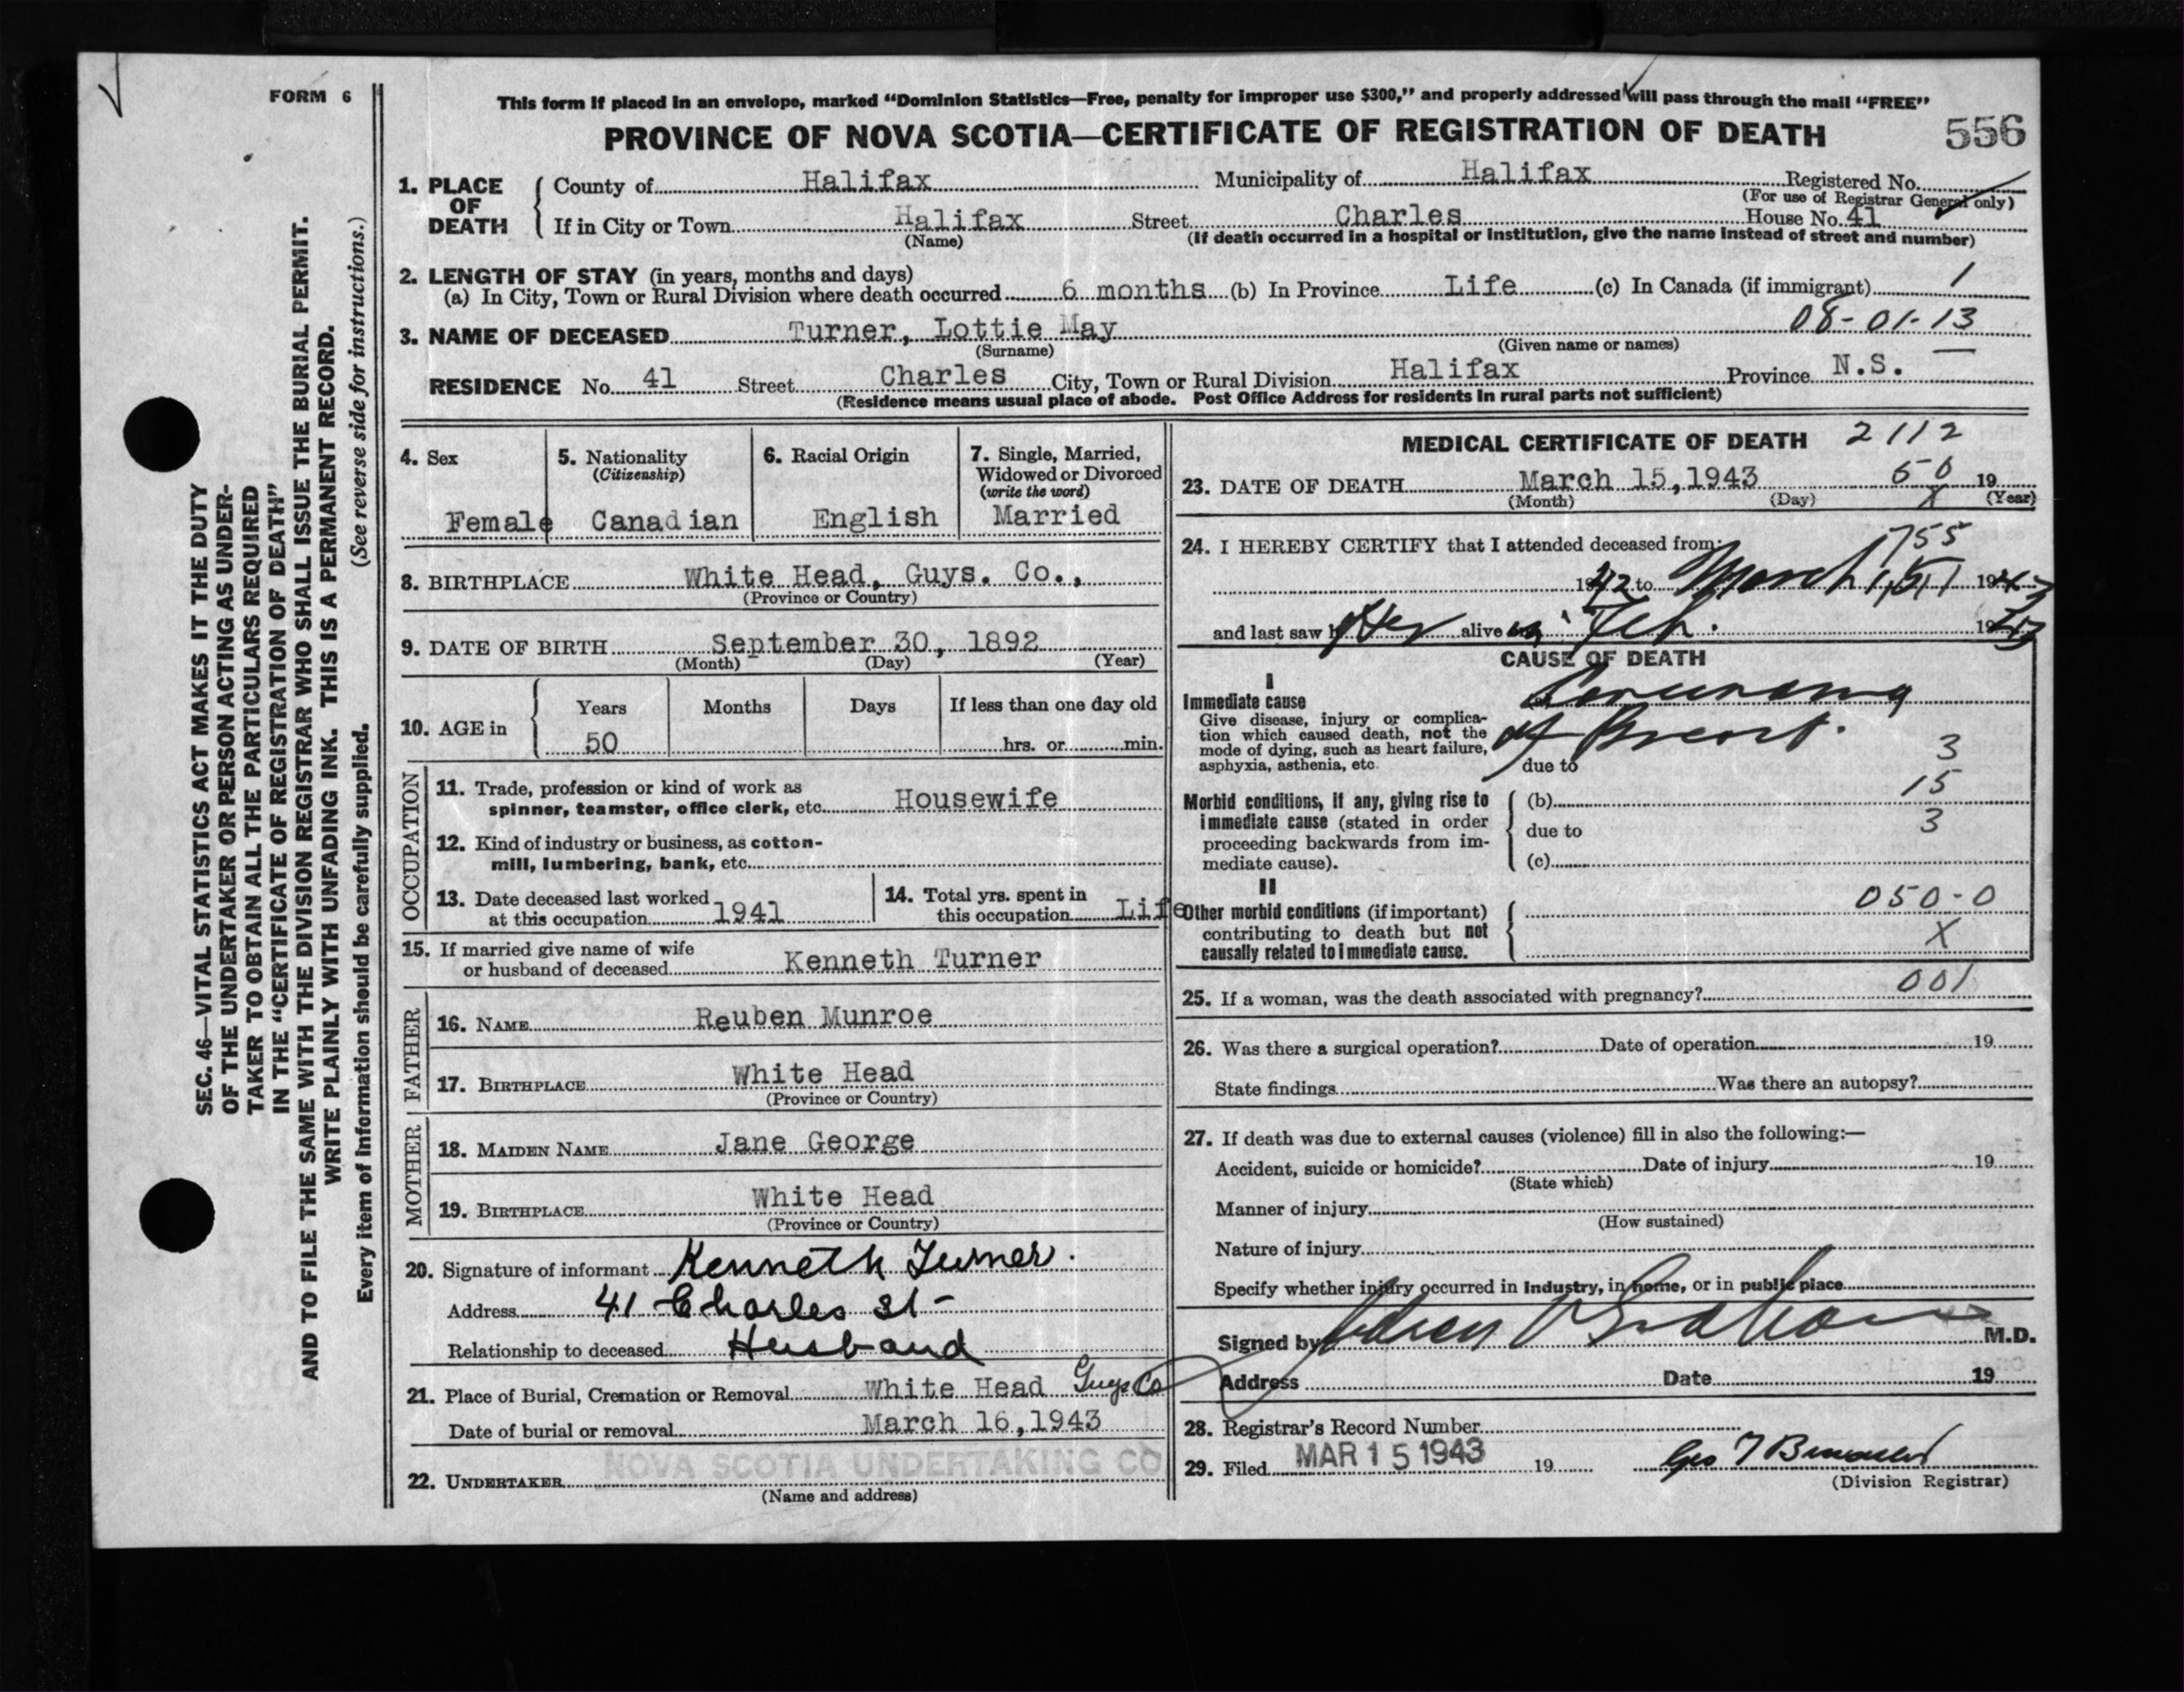 FORM 6
This form if placed in an envelope, marked “Dominion Statistics—Free, penalty for improper use $300,” and properly addressed will pass through the mail “FREE”
PROVINCE OF NOVA SCOTIA—CERTIFICATE OF REGISTRATION OF DEATH 556
SEC. 46—VITAL STATISTICS ACT MAKES IT THE DUTY
OF THE UNDERTAKER OR PERSON ACTING AS UNDER-
TAKER TO OBTAIN ALL THE PARTICULARS REQUIRED
IN THE “CERTIFICATE OF REGISTRATION OF DEATH”
AND TO FILE THE SAME WITH THE DIVISION REGISTRAR WHO SHALL ISSUE THE BURIAL PERMIT.
WRITE PLAINLY WITH UNFADING INK. THIS IS A PERMANENT RECORD.
Every item of information should be carefully supplied. (See reverse side for instructions.)
1. PLACE OF DEATH
County of Halifax Municipality of Halifax Registered No.
(For use of Registrar General only)
If in City or Town Halifax Street Charles House No. 41
(Name) (If death occurred in a hospital or institution, give the name instead of street and number)
2. LENGTH OF STAY (in years, months and days)
(a) In City, Town or Rural Division where death occurred 6 months (b) In Province Life (c) In Canada (if immigrant) 1
3. NAME OF DECEASED Turner, Lottie May 08-01-13
(Surname) (Given name or names)
RESIDENCE No. 41 Street Charles City, Town or Rural Division Halifax Province N.S.
(Residence means usual place of abode. Post Office Address for residents in rural parts not sufficient)
4. Sex
Female
5. Nationality
(Citizenship)
Canadian
6. Racial Origin
English
7. Single, Married,
Widowed or Divorced
(write the word)
Married
8. BIRTHPLACE White Head, Guys. Co.,
(Province or Country)
9. DATE OF BIRTH September 30, 1892
(Month) (Day) (Year)
10. AGE in
Years Months Days If less than one day old
50 hrs. or min.
OCCUPATION
11. Trade, profession or kind of work as
spinner, teamster, office clerk, etc. Housewife
12. Kind of industry or business, as cotton-
mill, lumbering, bank, etc.
13. Date deceased last worked
at this occupation 1941
14. Total yrs. spent in
this occupation Life
15. If married give name of wife
or husband of deceased Kenneth Turner
FATHER
16. NAME Reuben Munroe
17. BIRTHPLACE White Head
(Province or Country)
MOTHER
18. MAIDEN NAME Jane George
19. BIRTHPLACE White Head
(Province or Country)
20. Signature of informant Kenneth Turner.
Address 41 Charles St-
Relationship to deceased Husband
21. Place of Burial, Cremation or Removal White Head Guys Co
Date of burial or removal March 16, 1943
22. UNDERTAKER NOVA SCOTIA UNDERTAKING CO
(Name and address)
MEDICAL CERTIFICATE OF DEATH 2112
23. DATE OF DEATH March 15, 1943 50 19
(Month) (Day) X (Year)
24. I HEREBY CERTIFY that I attended deceased from: 755
1942 to March 15, 1943
and last saw her alive on Feb. 1943
CAUSE OF DEATH
I
Immediate cause
Give disease, injury or complica-
tion which caused death, not the
mode of dying, such as heart failure,
asphyxia, asthenia, etc.
of Breast.
3
due to
Morbid conditions, if any, giving rise to
immediate cause (stated in order
proceeding backwards from im-
mediate cause).
(b) 15
due to 3
(c)
II
Other morbid conditions (if important)
contributing to death but not
causally related to immediate cause.
050-0
X
25. If a woman, was the death associated with pregnancy? 001
26. Was there a surgical operation? Date of operation 19
State findings Was there an autopsy?
27. If death was due to external causes (violence) fill in also the following:—
Accident, suicide or homicide? Date of injury 19
(State which)
Manner of injury
(How sustained)
Nature of injury
Specify whether injury occurred in industry, in home, or in public place
Signed by M.D.
Address Date 19
28. Registrar's Record Number
29. Filed MAR 15 1943 19 Geo
(Division Registrar)